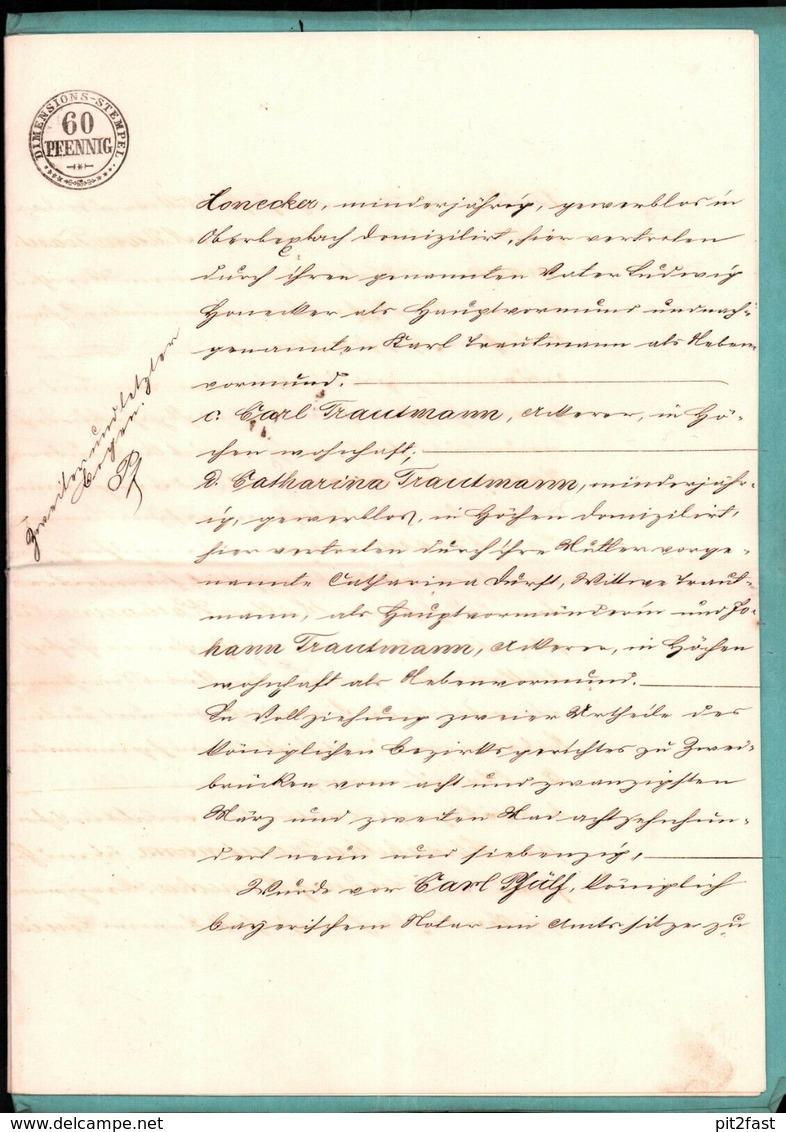 DIMENSIONS-STEMPEL
60
PFENNIG
Honecker, minderjährig, gewerblos in
Oberbexbach domizilirt, hier vertreten
durch ihren genannten Vater Ludwig
Honecker als Hauptvormund und nach-
genannten Karl Trautmann als Neben-
vormund.
c. Carl Trautmann, Ackerer, in Hö-
chen wohnhaft,
d. Catharina Trautmann, minderjähr-
ig, gewerblos, in Höchen domizilirt,
hier vertreten durch ihre Mutter vorge-
nannte Catharina Durst, Wittwe Traut-
mann, als Hauptvormünderin und Jo-
hann Trautmann, Ackerer, in Höchen
wohnhaft als Nebenvormund.
In Vollziehung zweier Urtheile des
königlichen Bezirksgerichtes zu Zwei-
brücken vom acht und zwanzigsten
März und zweiten Mai achtzehnhun-
dert neun und siebenzig,
Wurde vor Carl Pfülf, königlich
bayerischem Notar im Amtssitze zu
Zweiter und letzter
Bogen.
pit2fast